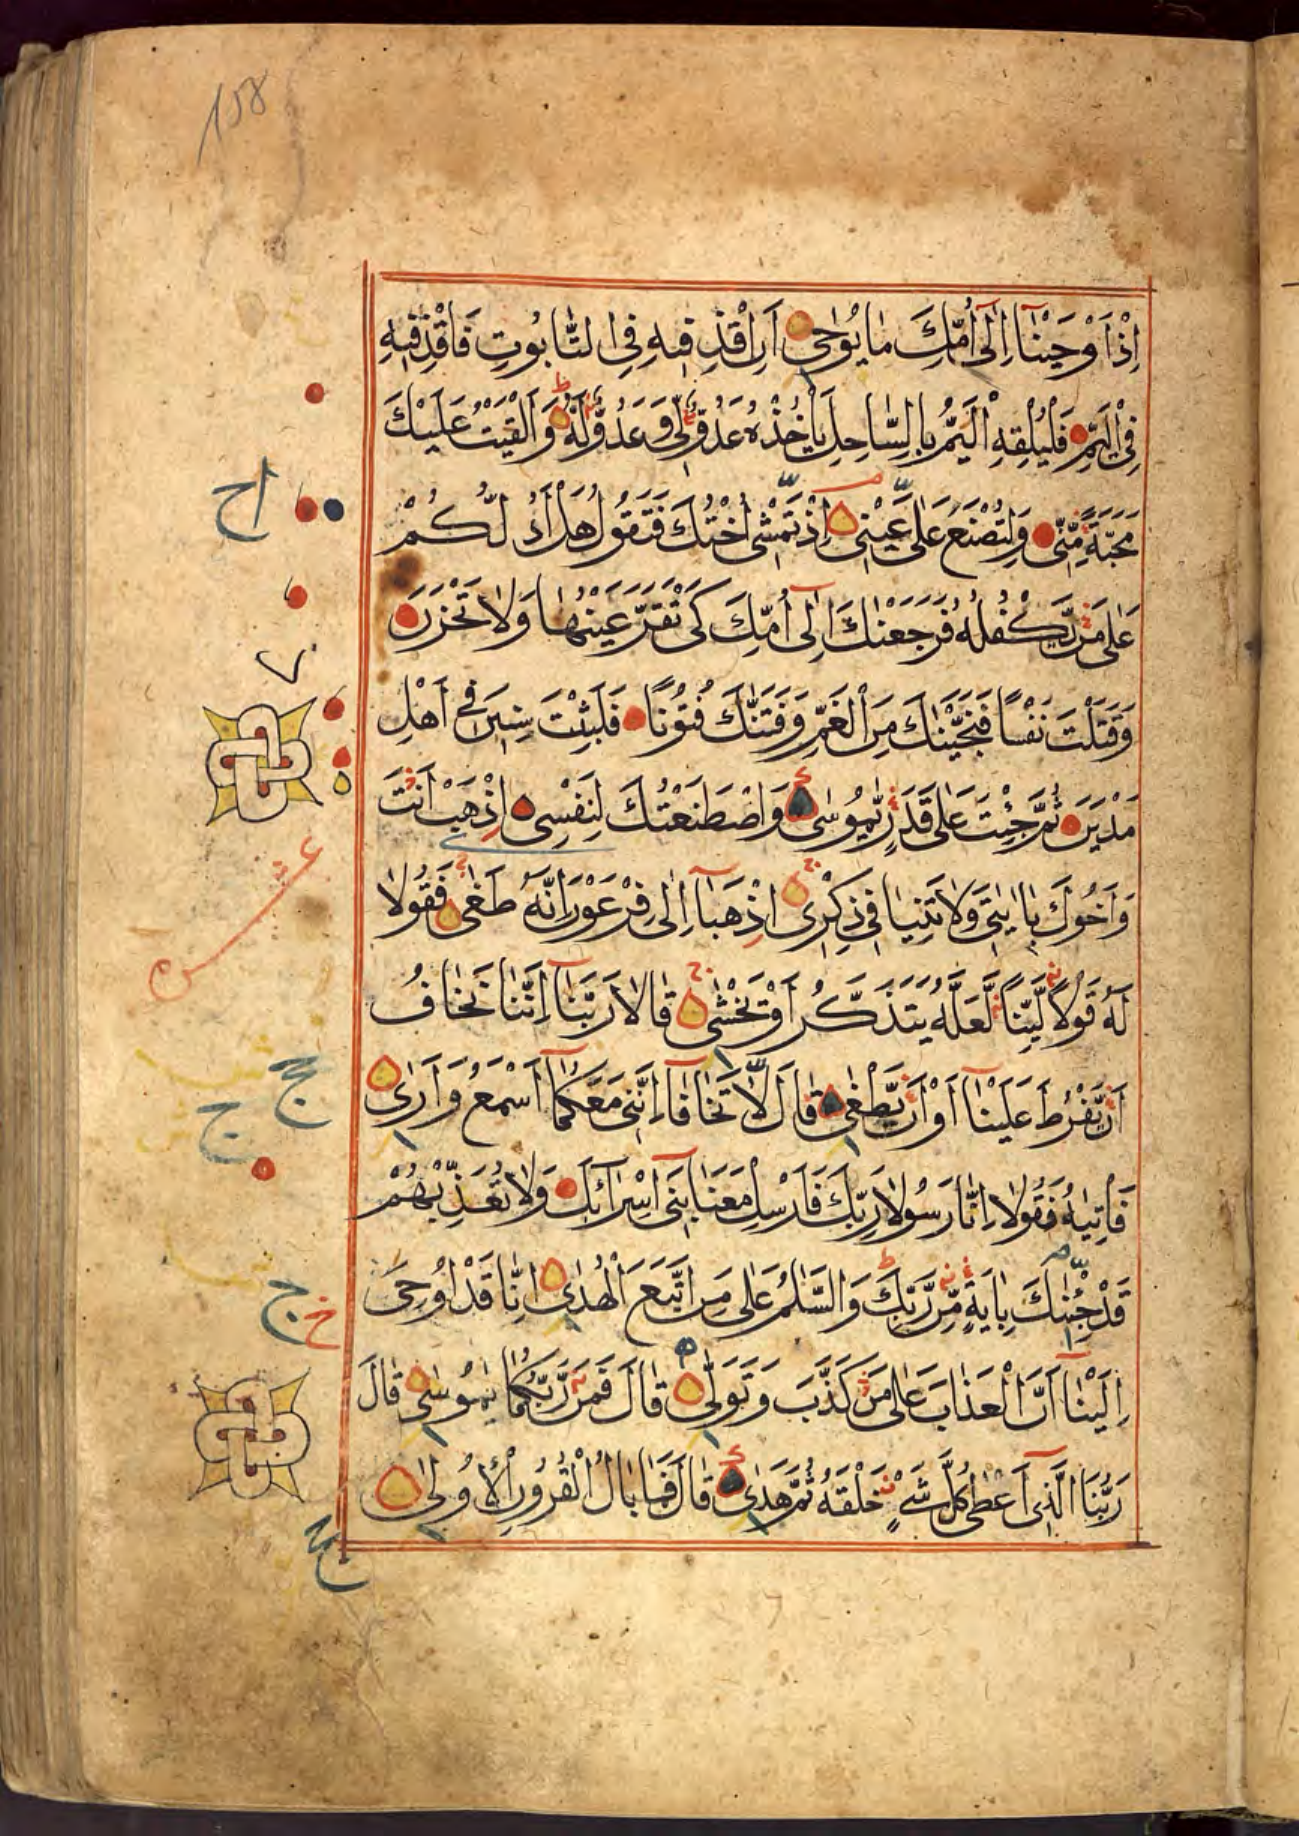 158
اِذْ اَوْحَيْنَآ اِلٰٓى اُمِّكَ مَا يُوْحٰى اَنِ اقْذِفِيْهِ فِى التَّابُوتِ فَاقْذِفِيْهِ
فِى الْيَمِّ فَلْيُلْقِهِ الْيَمُّ بِالسَّاحِلِ يَاْخُذْهُ عَدُوٌّ لِّى وَعَدُوٌّ لَّهُ وَاَلْقَيْتُ عَلَيْكَ
مَحَبَّةً مِّنِّى وَلِتُصْنَعَ عَلٰى عَيْنِى اِذْ تَمْشِىٓ اُخْتُكَ فَتَقُولُ هَلْ اَدُلُّكُمْ
عَلٰى مَنْ يَّكْفُلُهُ فَرَجَعْنٰكَ اِلٰٓى اُمِّكَ كَىْ تَقَرَّ عَيْنُهَا وَلَا تَحْزَنَ
وَقَتَلْتَ نَفْسًا فَنَجَّيْنٰكَ مِنَ الْغَمِّ وَفَتَنّٰكَ فُتُوْنًا فَلَبِثْتَ سِنِيْنَ فِىٓ اَهْلِ
مَدْيَنَ ثُمَّ جِئْتَ عَلٰى قَدَرٍ يّٰمُوْسٰى وَاصْطَنَعْتُكَ لِنَفْسِى اِذْهَبْ اَنْتَ
وَاَخُوْكَ بِاٰيٰتِى وَلَا تَنِيَا فِى ذِكْرِى اِذْهَبَآ اِلٰى فِرْعَوْنَ اِنَّهُ طَغٰى فَقُوْلَا
لَهُ قَوْلًا لَّيِّنًا لَّعَلَّهُ يَتَذَكَّرُ اَوْ يَخْشٰى قَالَا رَبَّنَآ اِنَّنَا نَخَافُ
اَنْ يَّفْرُطَ عَلَيْنَآ اَوْ اَنْ يَّطْغٰى قَالَ لَا تَخَافَآ اِنَّنِى مَعَكُمَآ اَسْمَعُ وَاَرٰى
فَاْتِيٰهُ فَقُوْلَآ اِنَّا رَسُوْلَا رَبِّكَ فَاَرْسِلْ مَعَنَا بَنِىٓ اِسْرَآئِيْلَ وَلَا تُعَذِّبْهُمْ
قَدْ جِئْنٰكَ بِاٰيَةٍ مِّنْ رَّبِّكَ وَالسَّلٰمُ عَلٰى مَنِ اتَّبَعَ الْهُدٰى اِنَّا قَدْ اُوْحِىَ
اِلَيْنَآ اَنَّ الْعَذَابَ عَلٰى مَنْ كَذَّبَ وَتَوَلّٰى قَالَ فَمَنْ رَّبُّكُمَا يٰمُوْسٰى قَالَ
رَبُّنَا الَّذِىٓ اَعْطٰى كُلَّ شَىْءٍ خَلْقَهُ ثُمَّ هَدٰى قَالَ فَمَا بَالُ الْقُرُوْنِ الْاُوْلٰى
عشر